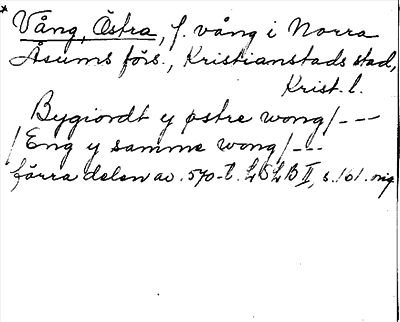 * Vång, Östra, f. vång i Norra
Åsums förs., Kristianstads stad,
Krist. l.
Bygiordt y østre wong/---
/Eng y samme wong/---
förra delen av 1570-t. LSLB II, s. 161. orig